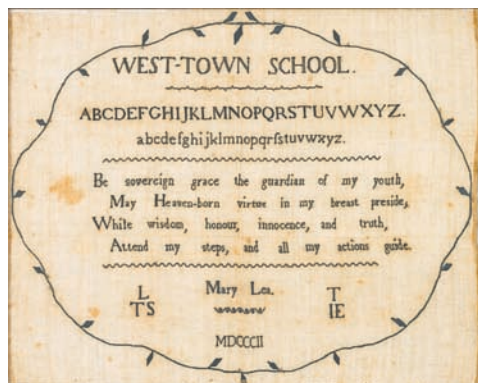 WEST-TOWN SCHOOL.
ABCDEFGHIJKLMNOPQRSTUVWXYZ.
abcdefghijklmnopqrſstuvwxyz.
Be sovereign grace the guardian of my youth,
May Heaven-born virtue in my breast preside,
While wisdom, honour, innocence, and truth,
Attend my steps, and all my actions guide.
L Mary Lea. T
TS IE
MDCCCII